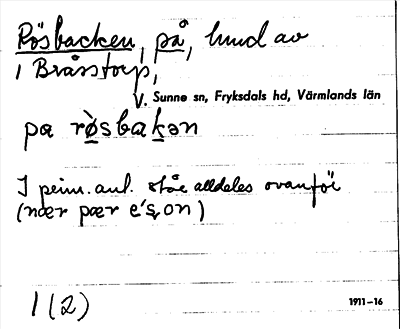 Rösbacken, på, hund av
i Bråstorp,
V. Sunne sn, Fryksdals hd, Värmlands län
pa rø̀sbakən
I prim. aul. står alldeles ovanför
(nær pær e's,on)
1 (2)
1911–16